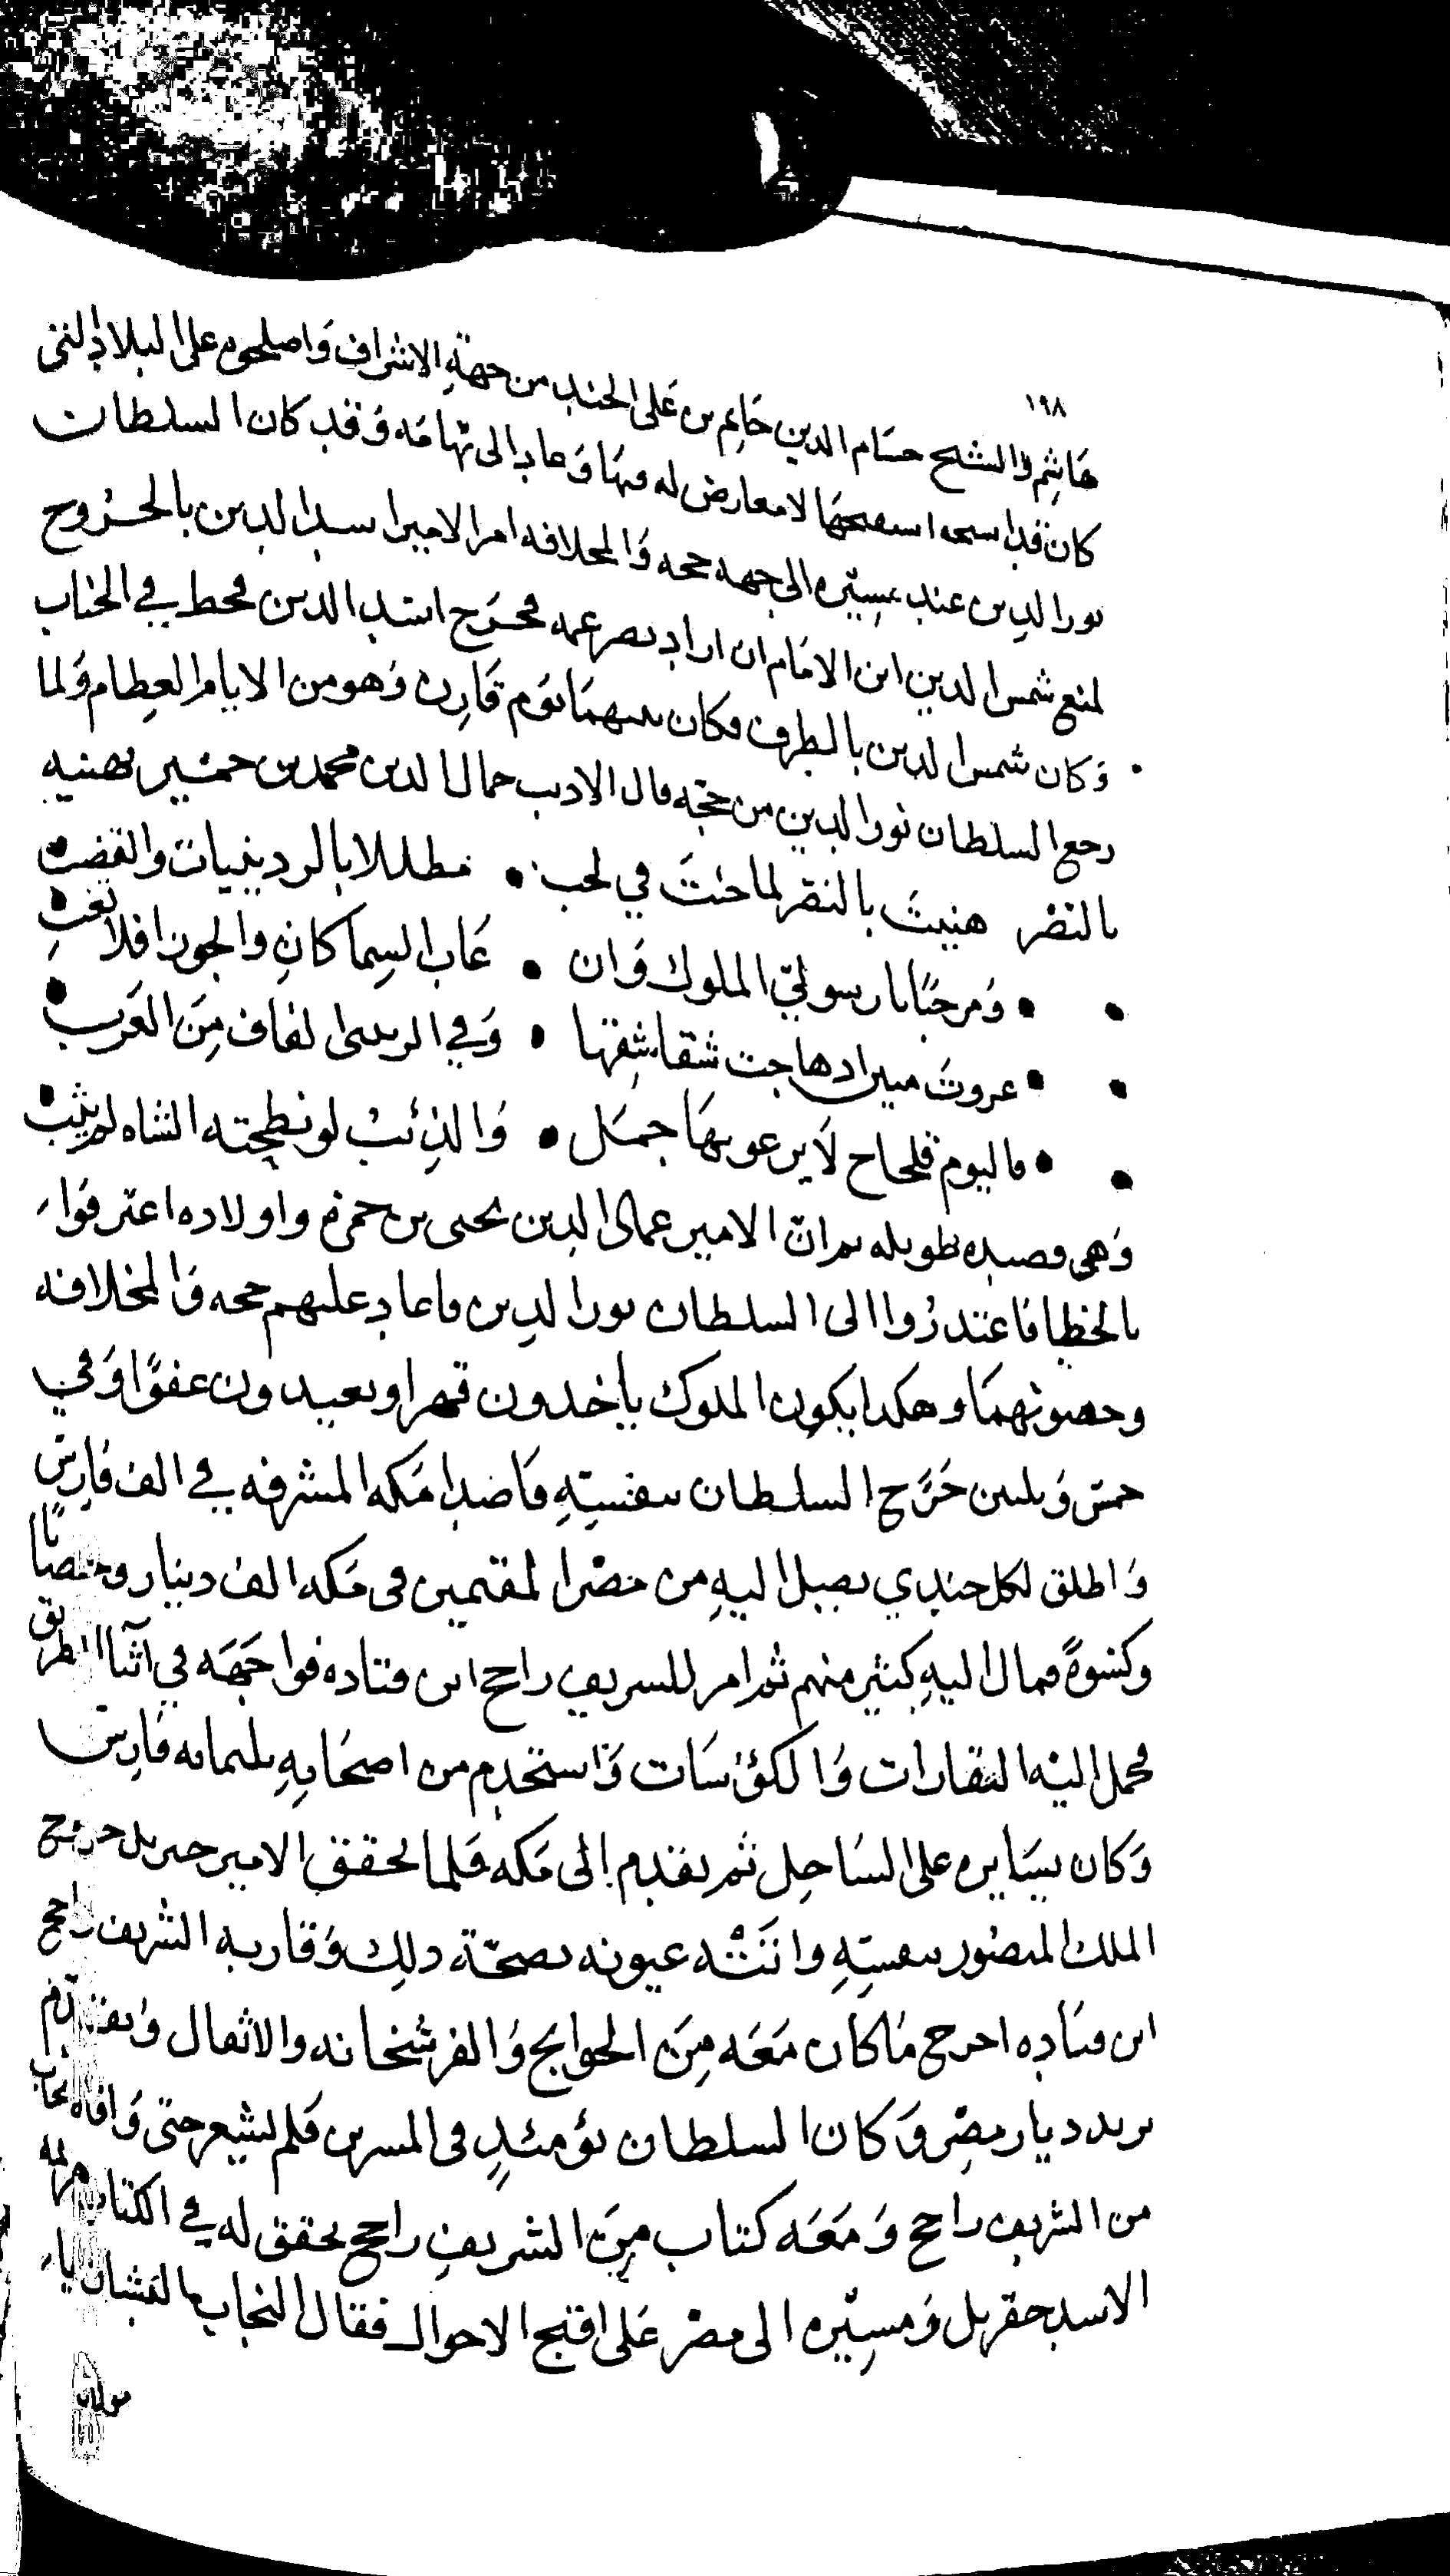 ١٩٨
هاشم والشيخ حسام الدين حاتم بن على الجند من جهة الاشراف واصلحوه على البلاد التى
كان قد استفتحها لا معارض له فيها وعاد الى تهامه وقد كان السلطان
نور الدين عند مسيره الى جهه حجه والمخلافه امر الامير اسد الدين بالخروج
لمنع شمس الدين ابن الامام ان اراد نصر عمه فخرج اسد الدين فحط في الجناب
وكان شمس الدين بالطرف فكان بينهما يوم قارن وهو من الايام العظام ولما
رجع السلطان نور الدين من حجه قال الاديب جمال الدين محمد بن حمير يهنيه
بالنصر هنيت بالنصر لما جئت في لجب • مظللا بالردينيات والقضب •
• ومرحبا يا رسولي الملوك وان • غاب السماكان والجوزا فلا تغب •
• غزوت مبين اذ هاجت شقاشقها • وفي لفاف من العرب •
• فاليوم لا يرغو بها جمل • والذئب لو نطحته الشاه لم يثب •
وهى قصيده طويله ثم ان الامير عماد الدين يحيى بن حمزه واولاده اعترفوا
بالخطا فاعتذروا الى السلطان نور الدين فاعاد عليهم حجه والمخلافه
وحصونهما وهكذا يكون الملوك يأخذون قهرا ويعيدون عفوًا وفي
خمس وثلثين خرج السلطان بنفسه قاصدا مكه المشرفه في الف فارس
واطلق لكل جندي يصل اليه من مصر المقيمين فى مكه الف دينار وحصانًا
وكسوةً فمال اليه كثير منهم ثم امر للشريف راجح ابن قتاده فواجهه في اثنا الطريق
فحمل اليه النقارات والكؤسات واستخدم من اصحابه ثلثمائه فارس
وكان يسايره على الساحل ثم تقدم الى مكه فلما تحقق الامير جبريل خروج
الملك المنصور بنفسه واتته عيونه بصحة ذلك وقاربه الشريف راجح
ابن قتاده احرق ما كان معه من الحوايج والفرشخانه والاثقال وتقدم
يريد ديار مصر وكان السلطان يومئذٍ فى السرين فلم يشعر حتى وافاه نجاب
من الشريف راجح ومعه كتاب من الشريف راجح يحقق له في الكتاب هزيمه
الاسد جفريل ومسيره الى مصر على اقبح الاحوال فقال النجاب البشاره يا
مولانا